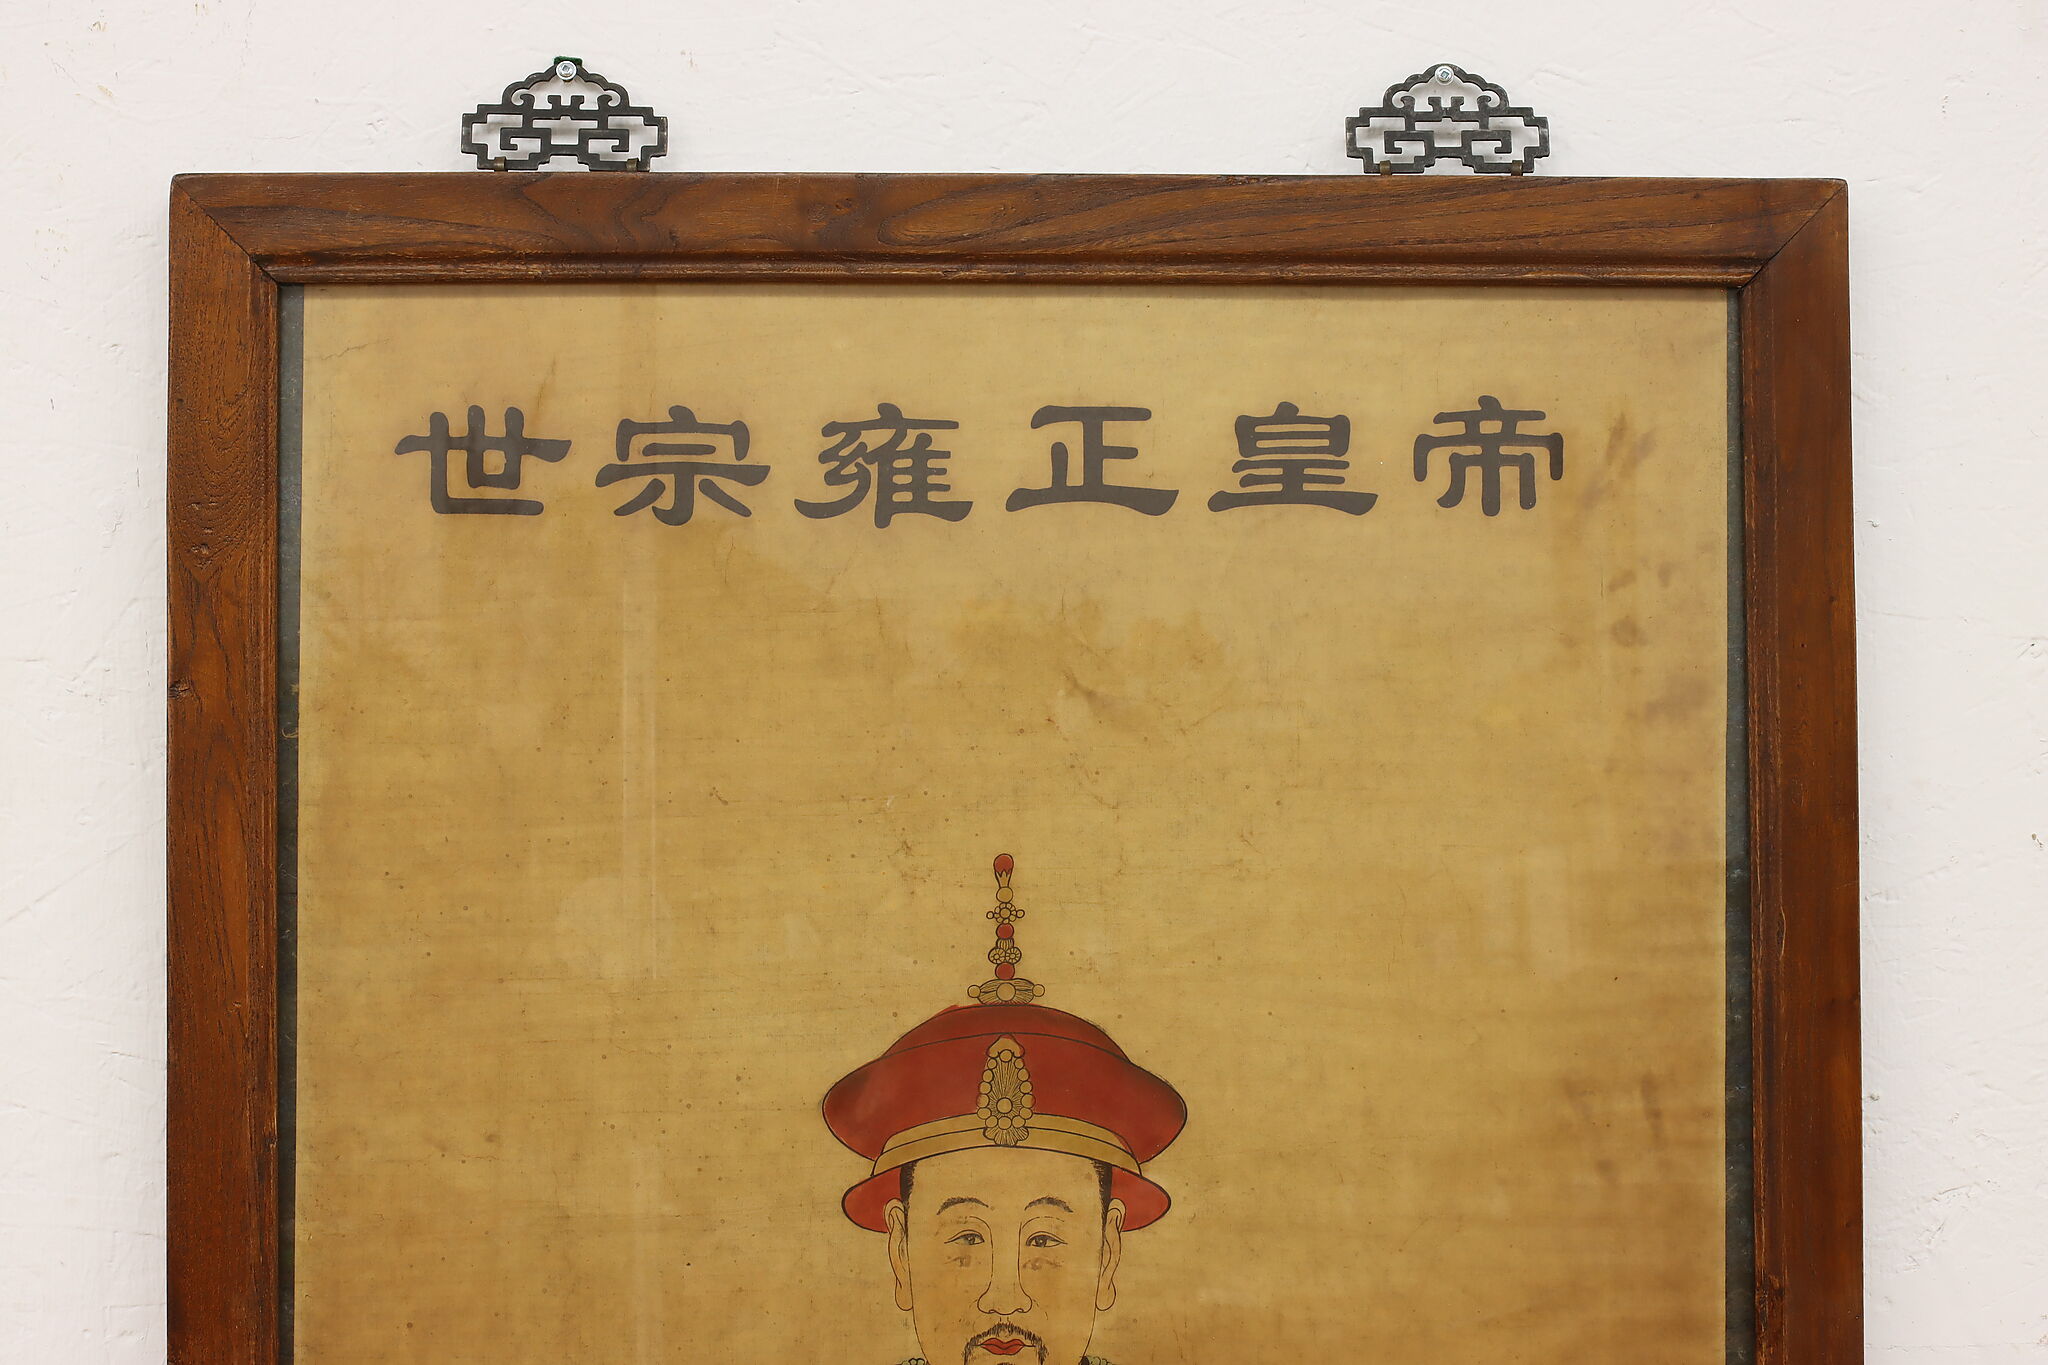 世宗雍正皇帝